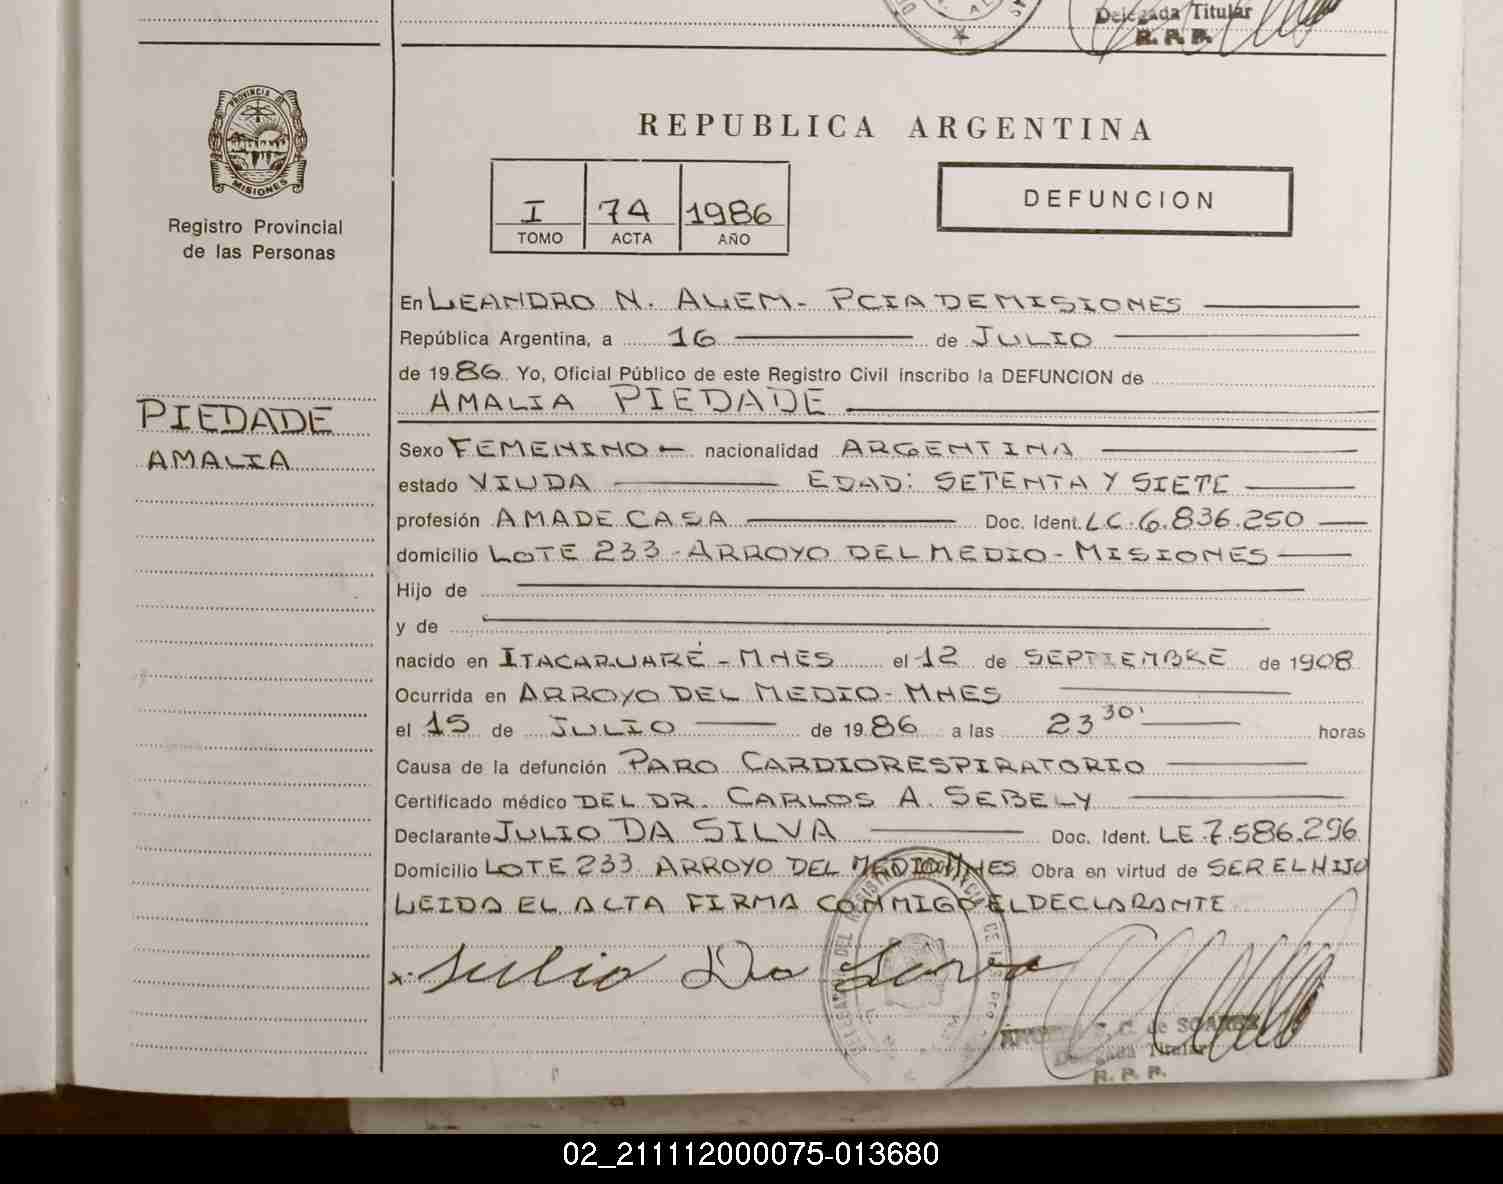 Delegada Titular
R. P. P.
PROVINCIA DE
MISIONES
Registro Provincial
de las Personas
REPUBLICA ARGENTINA
I 74 1986
TOMO ACTA AÑO
DEFUNCION
En LEANDRO N. ALEM - PCIA DE MISIONES
República Argentina, a 16 de JULIO
de 1986 Yo, Oficial Público de este Registro Civil inscribo la DEFUNCION de
AMALIA PIEDADE
PIEDADE
AMALIA
Sexo FEMENINO nacionalidad ARGENTINA
estado VIUDA EDAD: SETENTA Y SIETE
profesión AMA DE CASA Doc. Ident. LC. 6.836.250
domicilio LOTE 233 - ARROYO DEL MEDIO - MISIONES
Hijo de
y de
nacido en ITACARUARÉ - MNES el 12 de SEPTIEMBRE de 1908
Ocurrida en ARROYO DEL MEDIO - MNES
el 15 de JULIO de 1986 a las 23 30' horas
Causa de la defunción PARO CARDIORESPIRATORIO
Certificado médico DEL DR. CARLOS A. SEBELY
Declarante JULIO DA SILVA Doc. Ident. LE 7.586.296
Domicilio LOTE 233 ARROYO DEL MEDIO MNES Obra en virtud de SER EL HIJO
LEIDA EL ALTA FIRMA CONMIGO EL DECLARANTE
x. Julio Da
de SOAREZ
Delegada Titular
R. P. P.
02_211112000075-013680